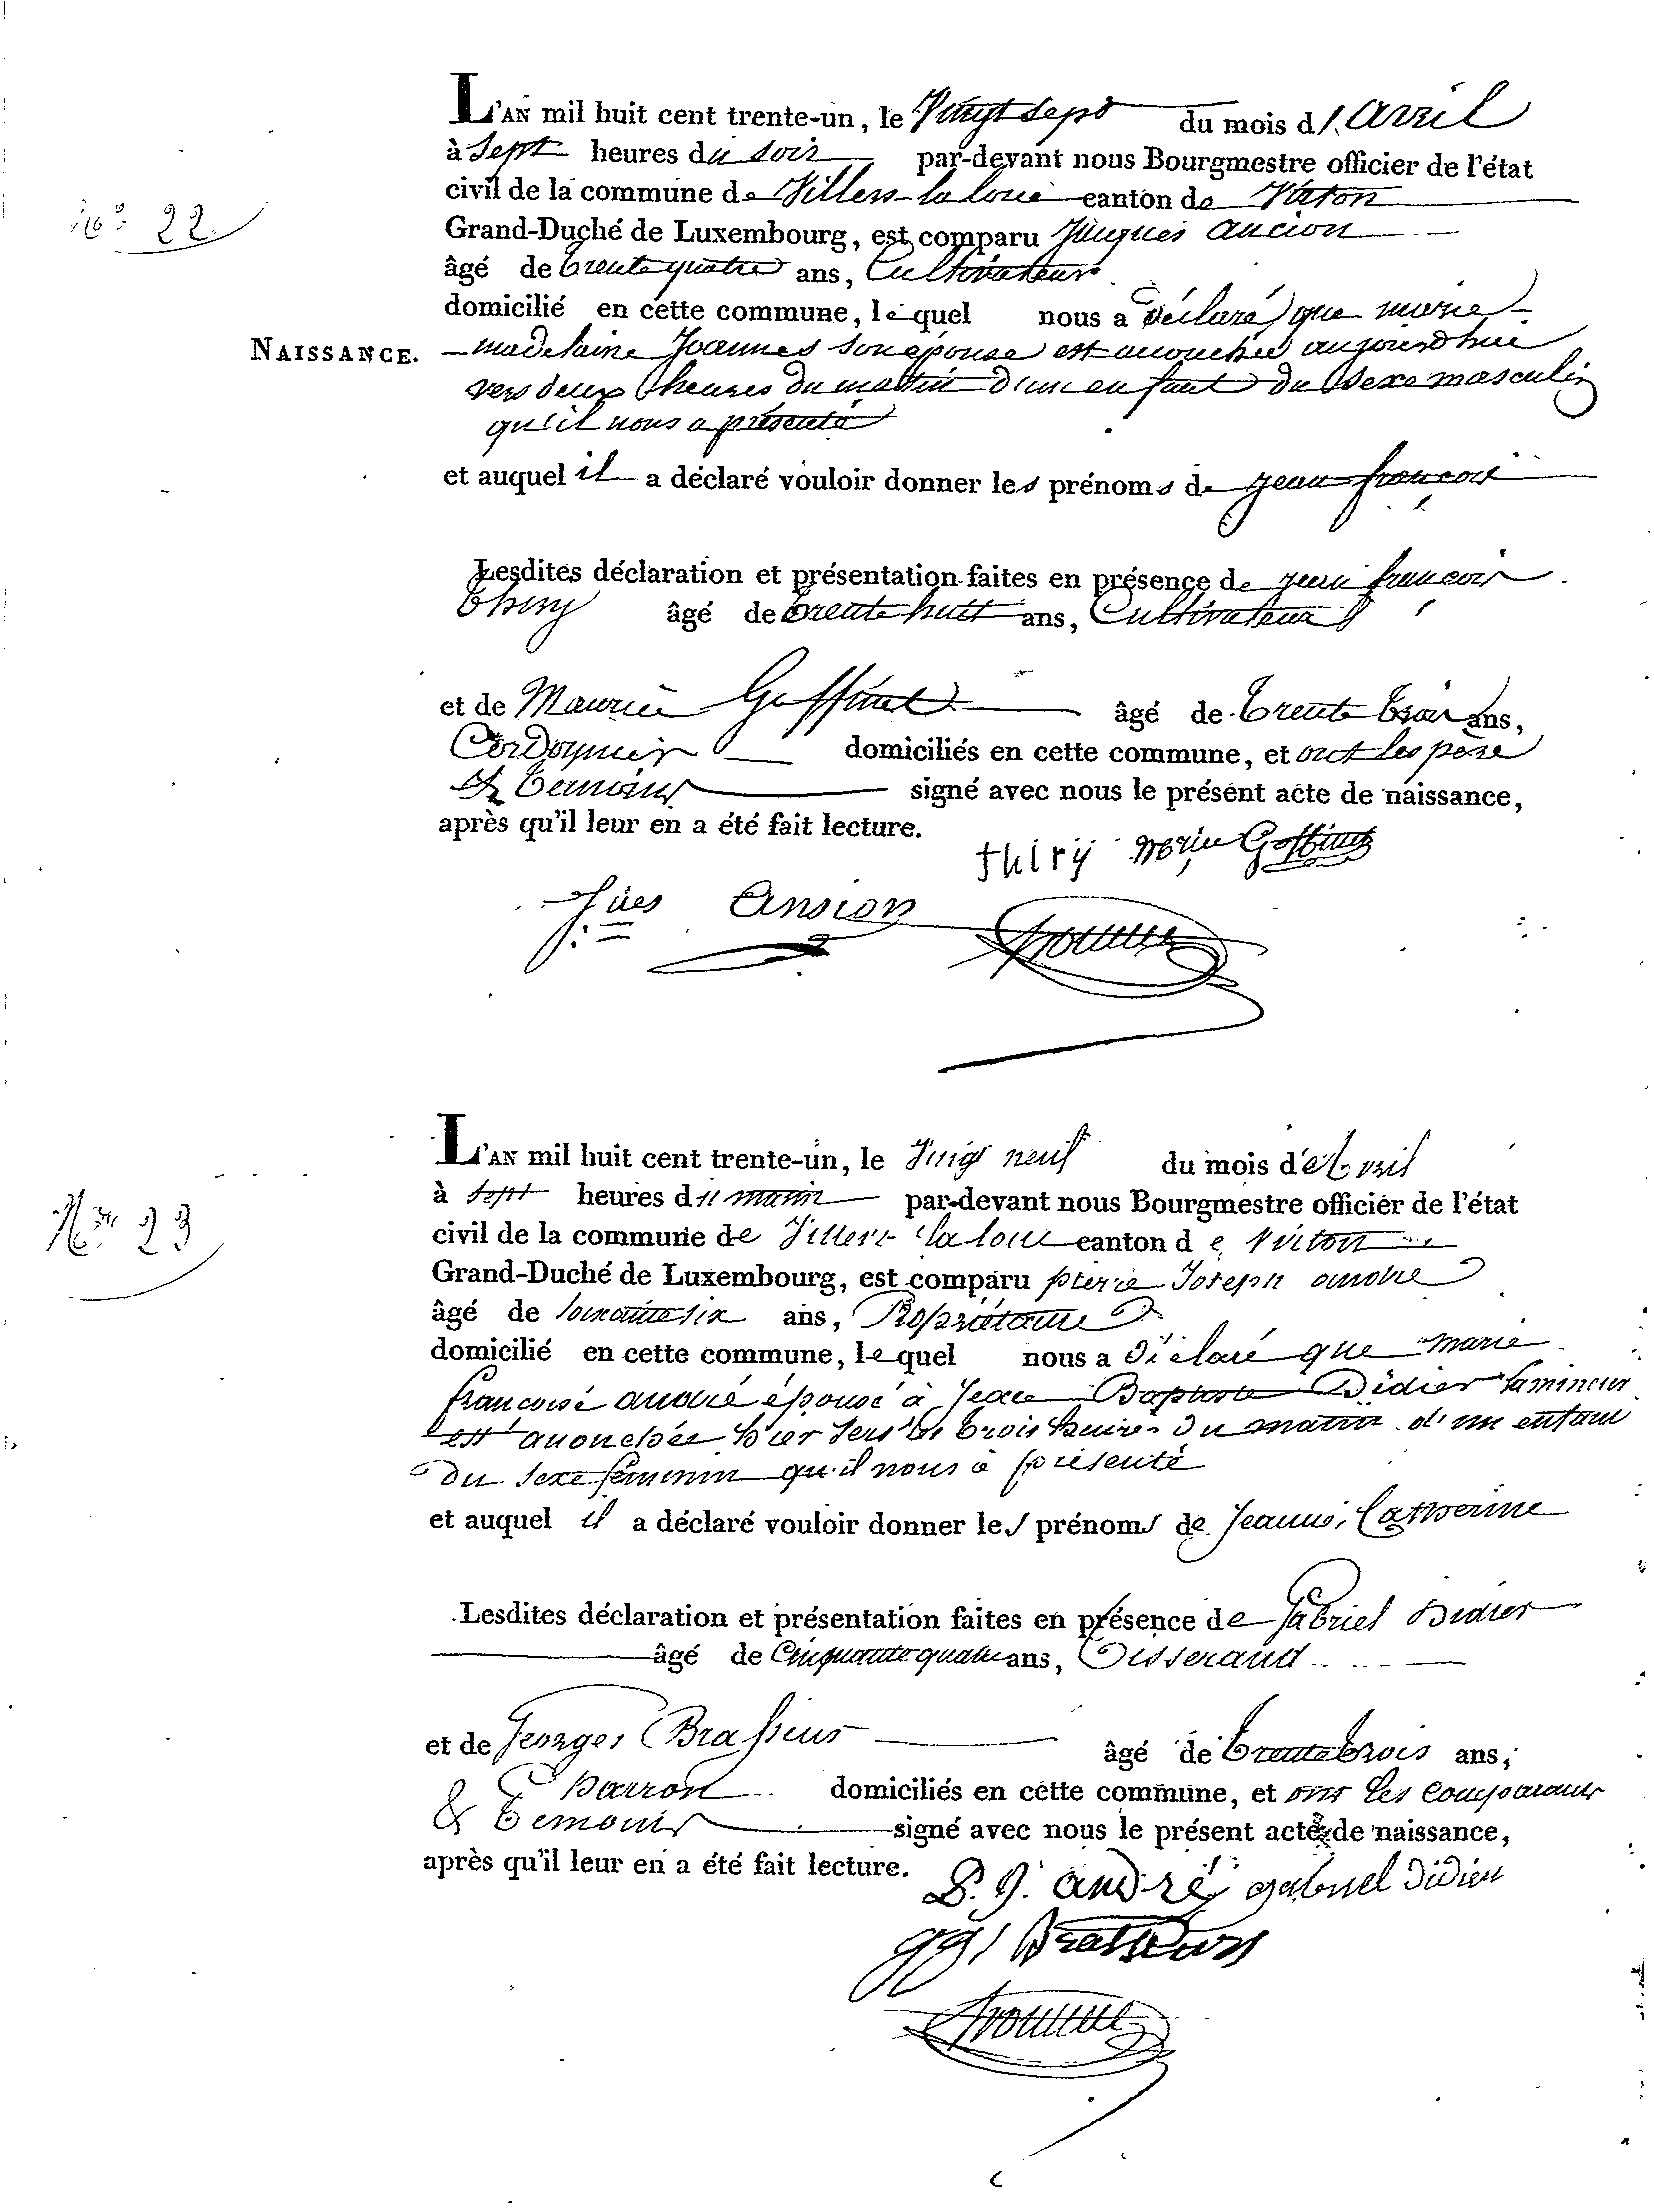 L'AN mil huit cent trente-un, le Vingt Sept du mois d'avril
à Sept heures du soir par-devant nous Bourgmestre officier de l'état
civil de la commune de Villers-la loue canton de Virton
N° 22
Grand-Duché de Luxembourg, est comparu Jacques ancion
âgé de trente quatre ans, Cultivateur
domicilié en cette commune, lequel nous a déclaré que marie
NAISSANCE.
madelaine Joannes son épouse est accouchée aujourd'hui
vers deux heures du matin d'un enfant du sexe masculin
qu'il nous a présenté
et auquel il a déclaré vouloir donner les prénoms de jean françois
Lesdites déclaration et présentation faites en présence de jean françois
thiry âgé de trente huit ans, Cultivateur
et de Maurice Goffinet âgé de trente trois ans,
Cordonnier domiciliés en cette commune, et ont les père
& temoins signé avec nous le présent acte de naissance,
après qu'il leur en a été fait lecture.
thirÿ Goffinet
J ues Ansion
L'AN mil huit cent trente-un, le Vingt neuf du mois d'avril
à sept heures du matin par-devant nous Bourgmestre officier de l'état
N° 23
civil de la commune de Villers-la loue canton de Virton
Grand-Duché de Luxembourg, est comparu pierre Joseph andré
âgé de soixante six ans, Propriétaire
domicilié en cette commune, lequel nous a déclaré que marie
francoise andré épouse à Jean Baptiste Didier lamineur
est accouchée hier vers les trois heures du matin d'un enfant
du sexe féminin qu'il nous a présenté
et auquel il a déclaré vouloir donner les prénoms de Jeanne, Catherine
Lesdites déclaration et présentation faites en présence de Gabriel Didier
âgé de Cinquante quatre ans, Tisserand
et de Georges Brasseur âgé de trente trois ans,
domiciliés en cette commune, et ont les comparants
& temoins signé avec nous le présent acte de naissance,
après qu'il leur en a été fait lecture.
P. J. andré gabriel didier
gg, Brasseur